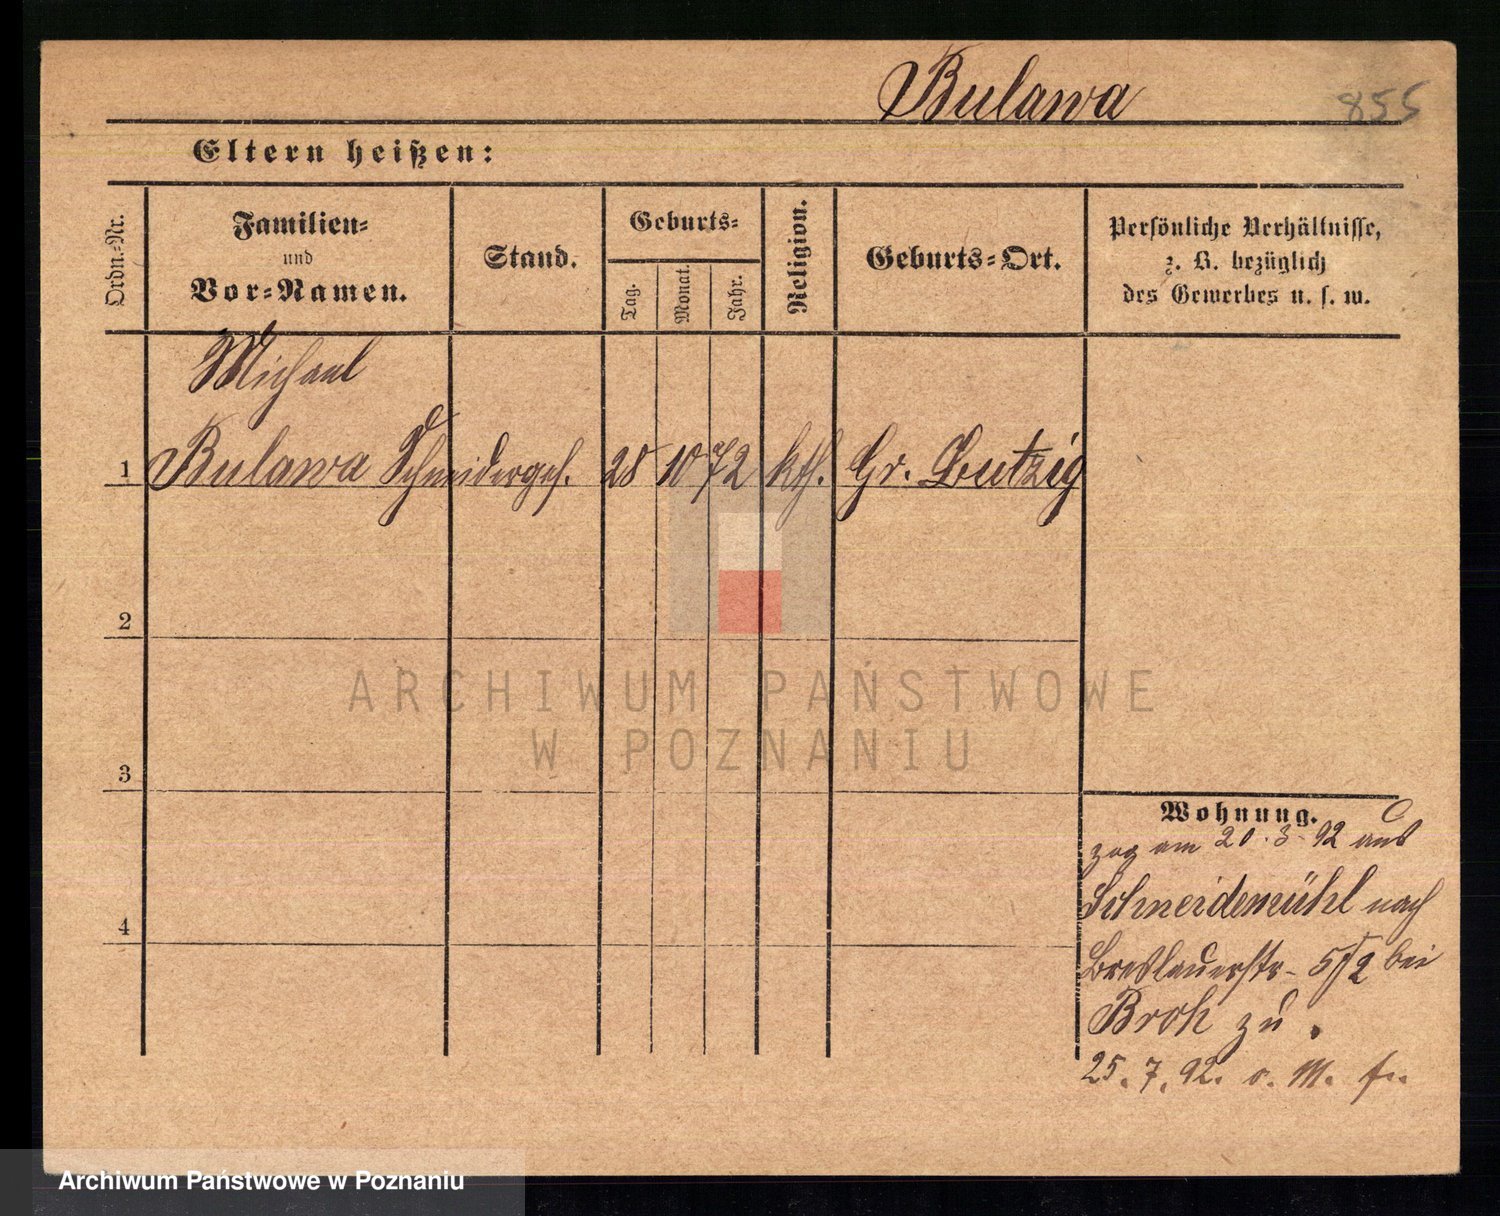 Bulawa 855
Eltern heißen:
Ordn.-Nr. Familien- und Vor-Namen. Stand. Geburts- Tag. Monat. Jahr. Religion. Geburts-Ort. Persönliche Verhältnisse, z. B. bezüglich des Gewerbes u. s. w.
Michael
1 Bulawa Schneiderges. 28 10 72 kth. Gr. Lutzig
2
ARCHIWUM PAŃSTWOWE
W POZNANIU
3
Wohnung.
zog am 20.3.92 aus
Schneidemühl nach
4
Breslauerstr. 5/2 bei
Brok zu.
25.7.92. o. M. fr.
Archiwum Państwowe w Poznaniu